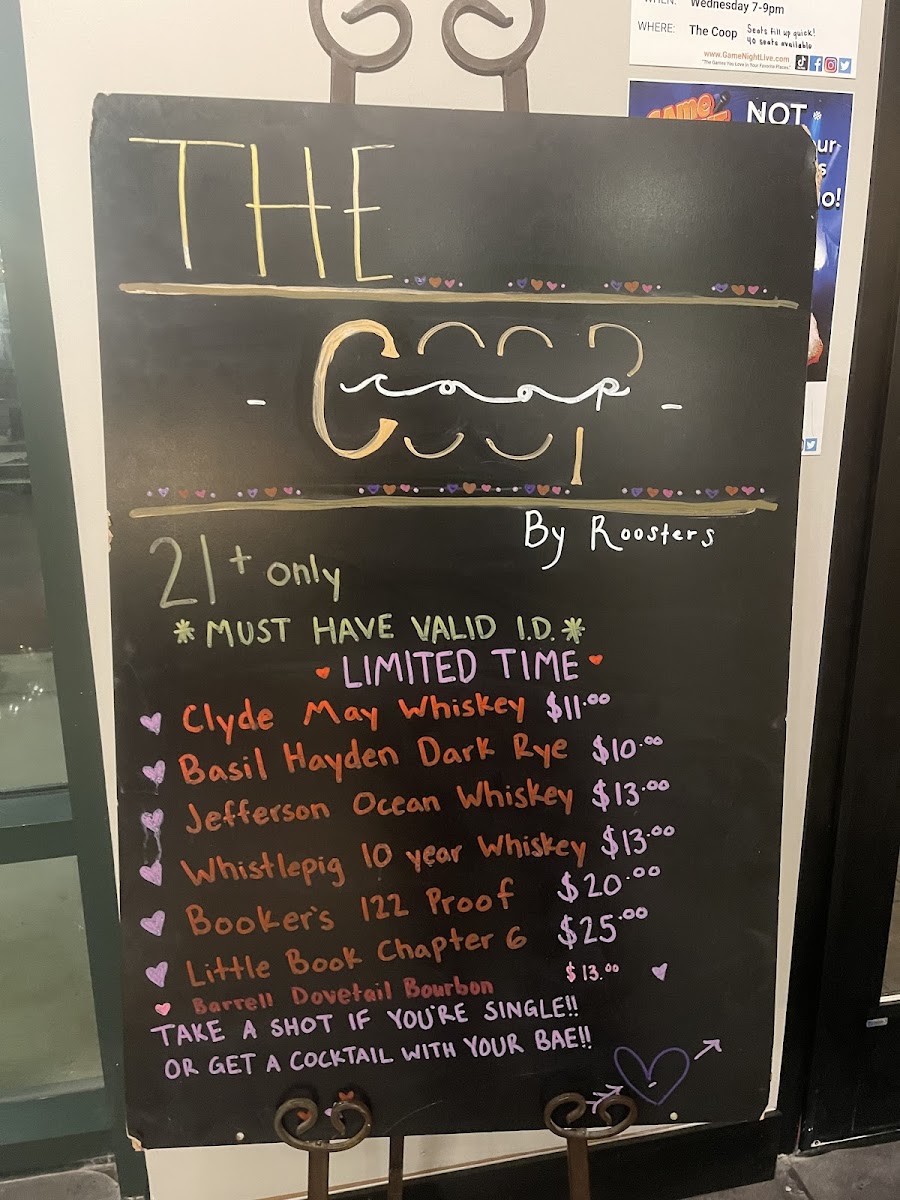 WHEN: Wednesday 7-9pm
WHERE: The Coop Seats fill up quick!
40 seats available
www.GameNightLive.com
"The Games You Love In Your Favorite Places"
NOT
THE
Coop
coop
By Roosters
21+ only
*MUST HAVE VALID I.D.*
LIMITED TIME
Clyde May Whiskey $11.00
Basil Hayden Dark Rye $10.00
Jefferson Ocean Whiskey $13.00
Whistlepig 10 year Whiskey $13.00
Booker's 122 Proof $20.00
Little Book Chapter 6 $25.00
Barrell Dovetail Bourbon $13.00
TAKE A SHOT IF YOU'RE SINGLE!!
OR GET A COCKTAIL WITH YOUR BAE!!